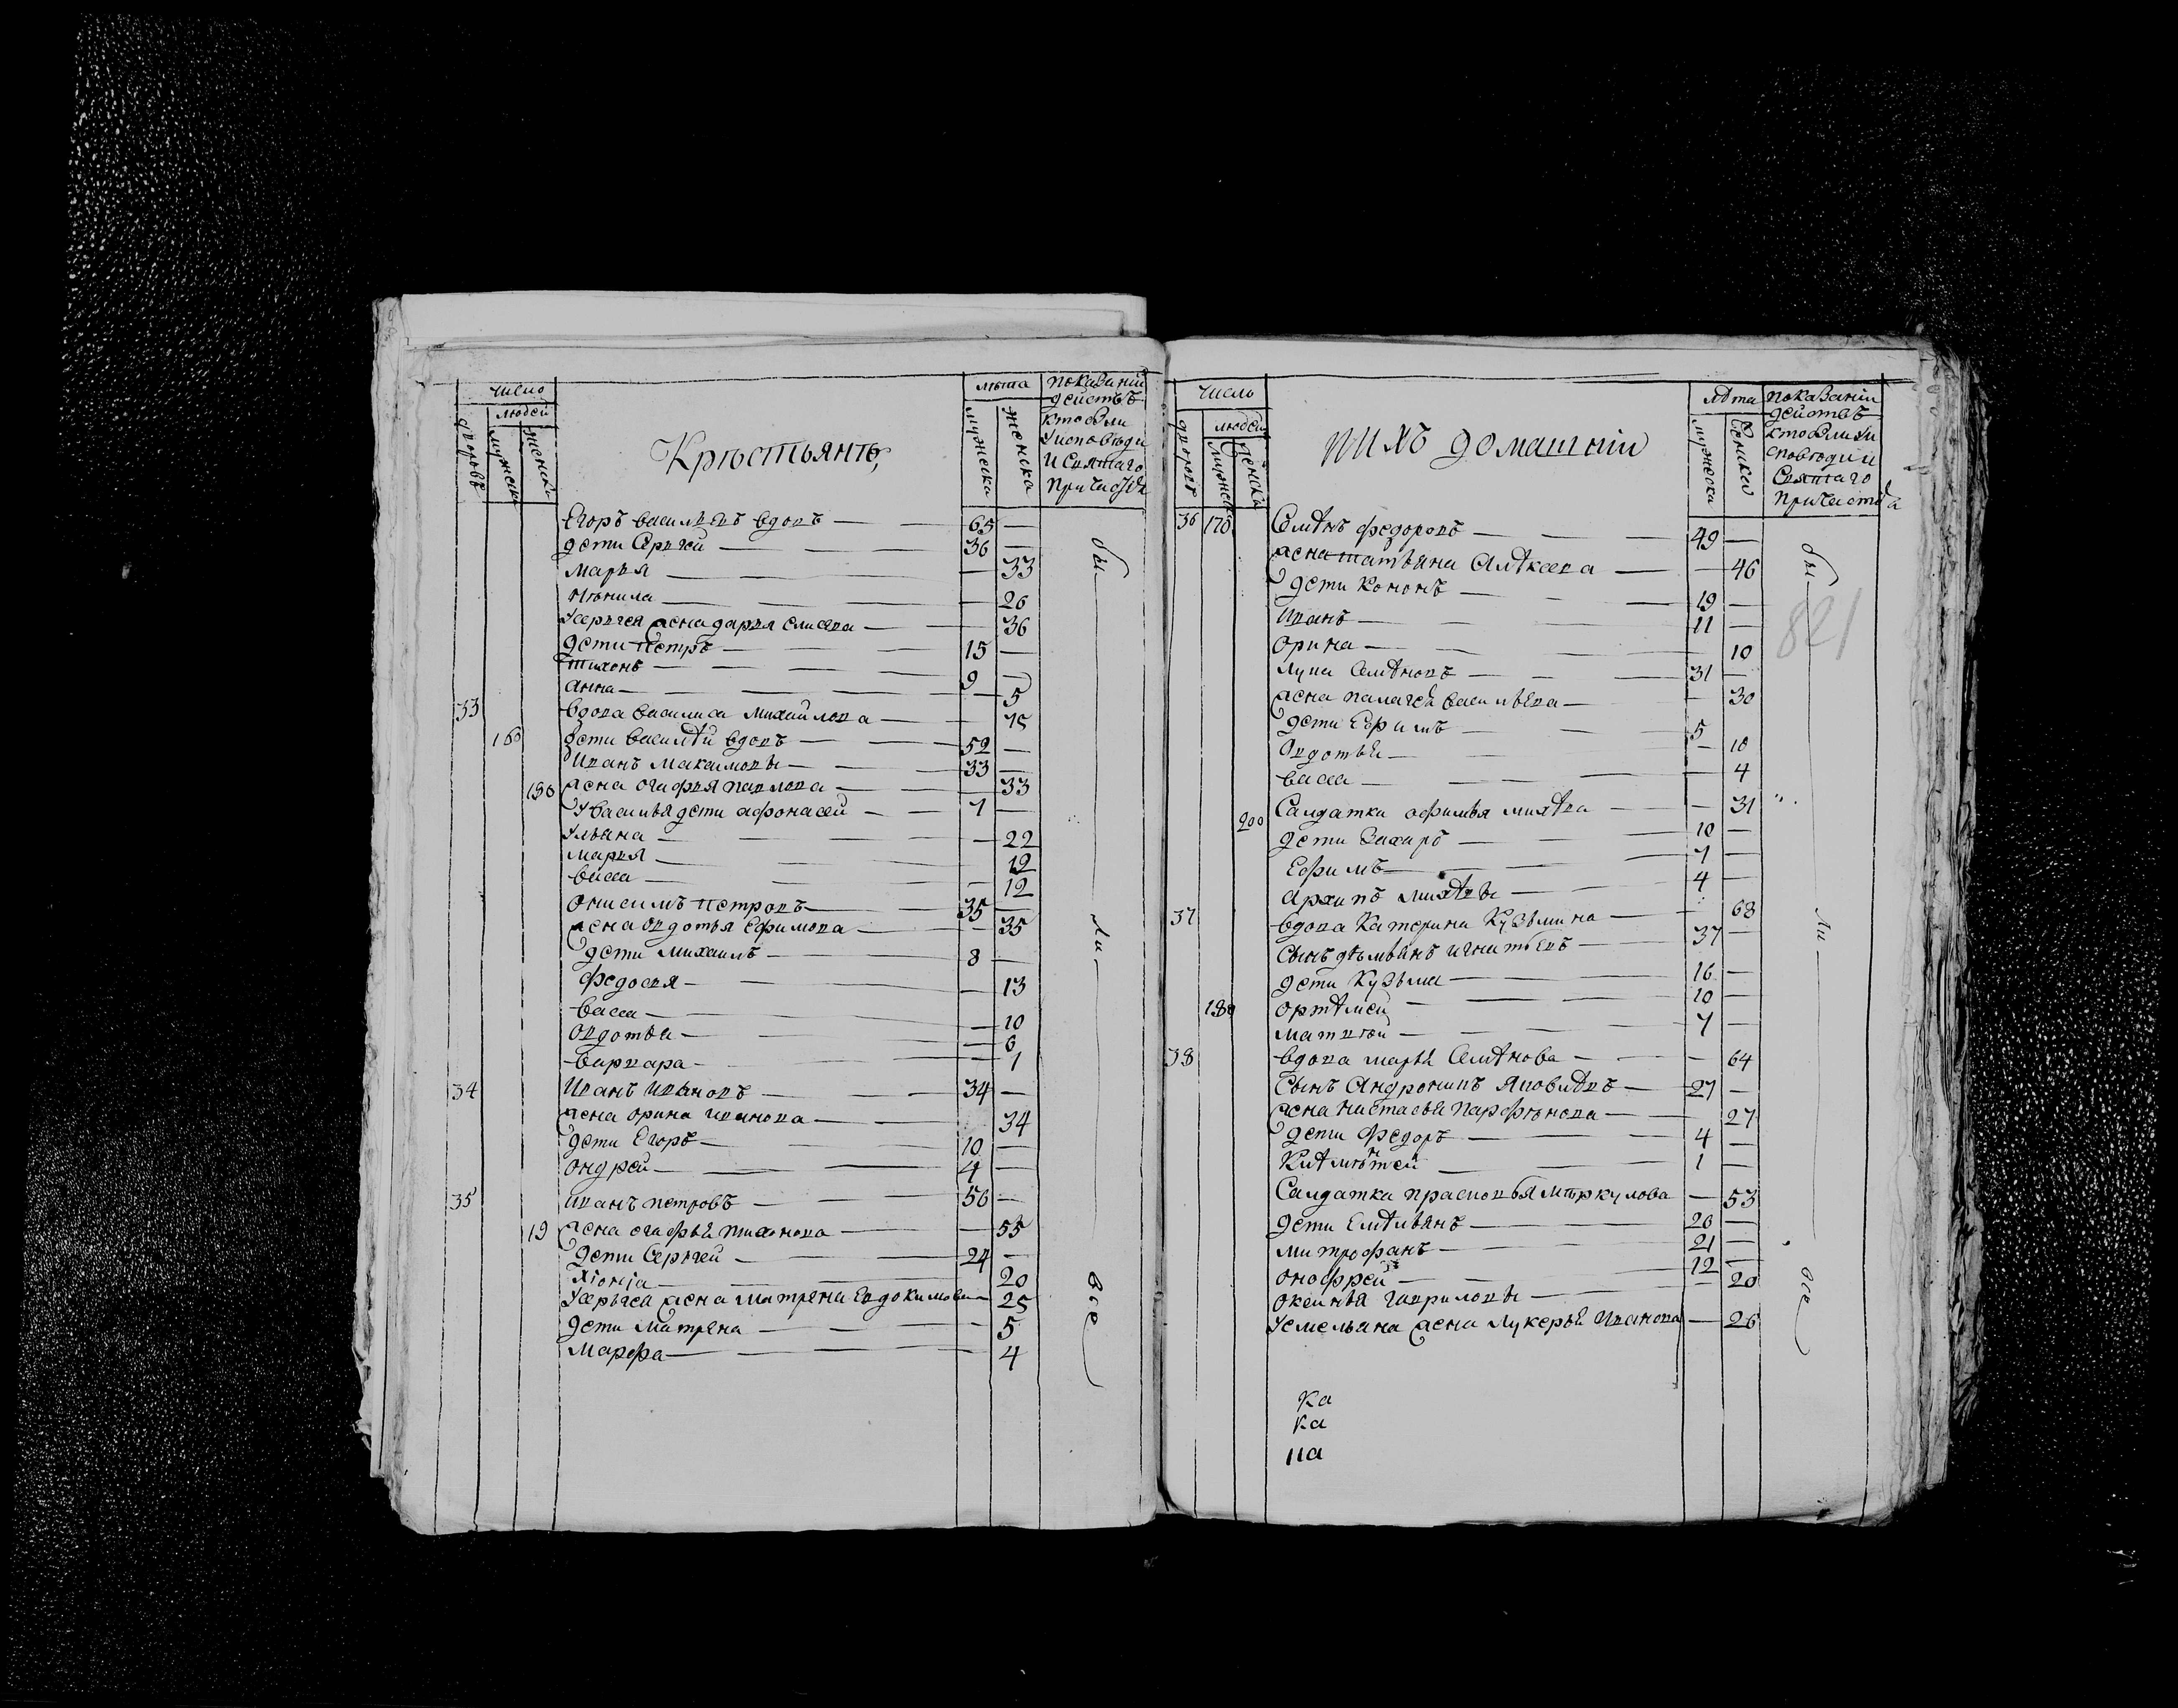 число
людей
дворовъ
мужеска
женска
Крѣстьянѣ,
лѣта
мужеска
женска
показаніи
действъ
кто были
у исповѣди
и Святаго
причастія
Егоръ васильевъ вдовъ — 65 —
дети Сергей — 36 —
марья — 33
Ненила — 26
у сергея жена дарья елисеева — 36
дети петръ — 15 —
тихонъ — 9 —
анна — 5
33 вдова василиса михайлова — 75
160 дети василѣй вдовъ — 52 —
Иванъ Максимовы — 33 —
190 жена огафья павлова — 33
у василья дети афонасей — 7 —
ульяна — 22
марья — 12
васса — 12
онисимъ петровъ — 35 —
жена овдотья Ефимова — 35
дети михаилъ — 8 —
федосья — 13
васса — 10
овдотья — 6
варвара — 1
34 Иванъ ивановъ — 34 —
жена орина иванова — 34
дети Егоръ — 10 —
ондрей — 4 —
35 иванъ петровъ — 56 —
19 жена огафья тихонова — 55
дети Сергей — 24 —
хіонія — 20
у сергея жена матрена евдокимова — 25
дети матрена — 5
марфа — 4
бы
ли
все
число
людей
дворовъ
мужеска
женска
ихъ домашніи
лѣта
мужеска
женска
показаніи
действъ
кто были у и
сповѣди и
Святаго
причастія
36 170 Семѣнъ федоровъ — 49 —
жена татьяна Алѣксева — 46
дети Кононъ — 19 —
иванъ — 11 —
орина — 10
лупа Семѣновъ — 31 —
жена палагея васильева — 30
дети Ефимъ — 5
Овдотья — 10
васса — 4
200 Салдатка афимья михѣва — 31
дети Захаръ — 10 —
Ефимъ — 7 —
архипъ михѣвы — 4 —
37 вдова Катерина Кузьмина — 68
сынъ дѣмьянъ игнатьевъ — 37 —
дети Кузьма — 16 —
180 ортѣмей — 10 —
матвѣй — 7 —
38 вдова марья Семѣнова — 64
Сынъ Андроникъ Яковлѣвъ — 27 —
жена настасья парфѣнова — 27
дети федоръ — 4 —
1 —
Салдатка прасковья мѣркулова — 53
дети Емѣльянъ — 26 —
митрофанъ — 21 —
онофрей — 12 —
оксинья гавриловы — 20
у емельяна жена лукерья иванова — 26
бы
ли
все
821
ка
ка
на